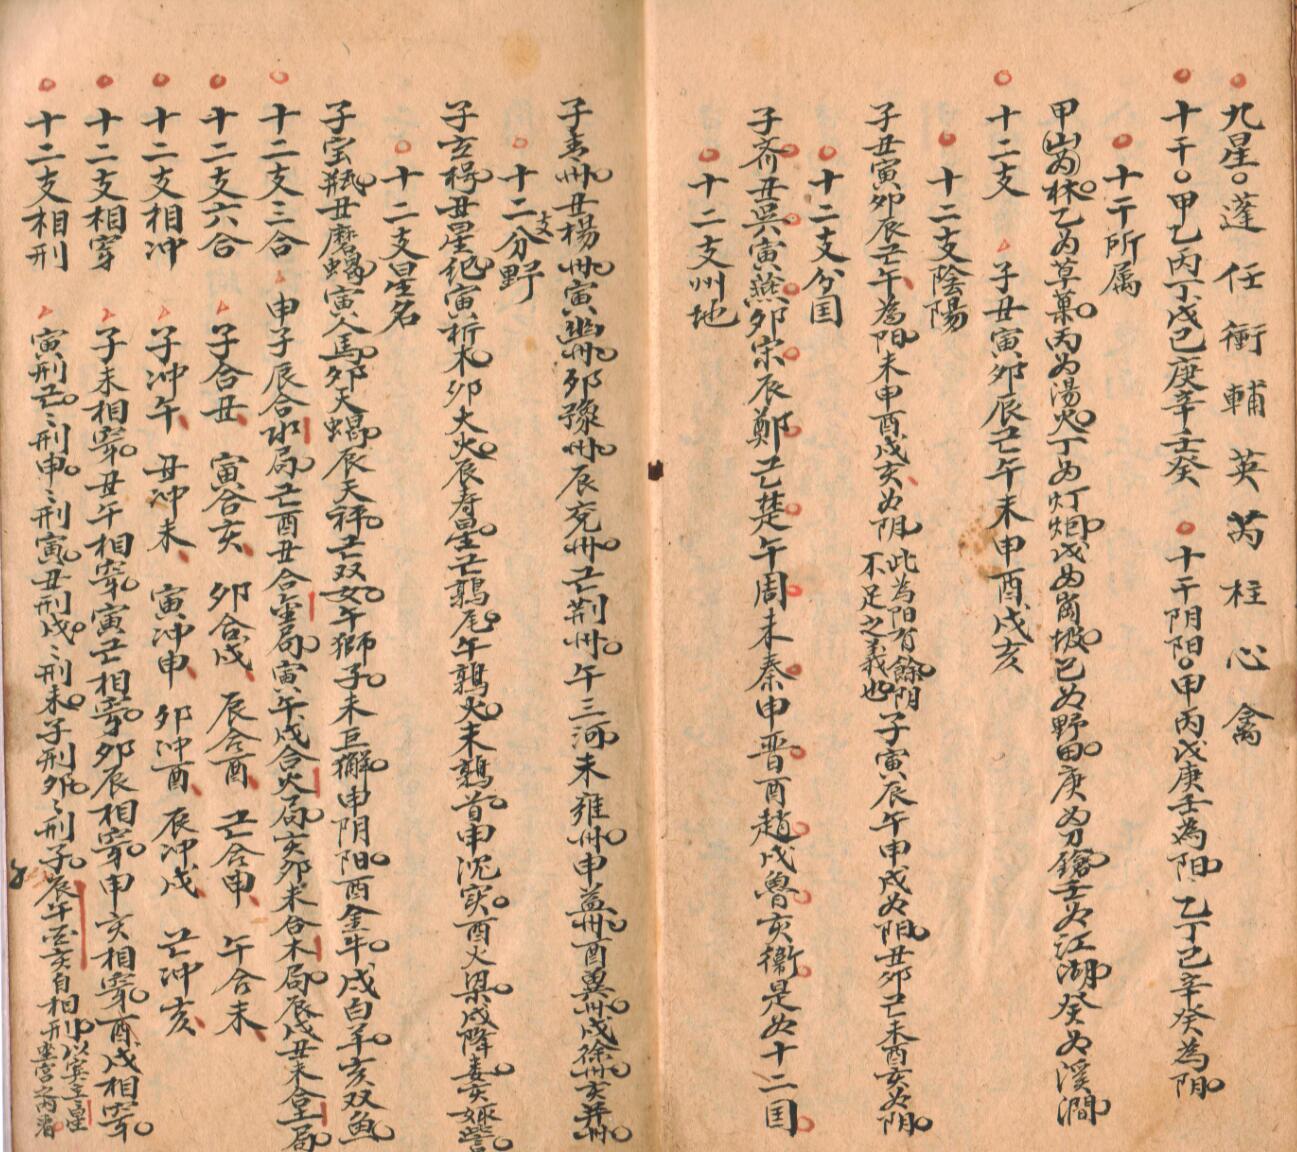 九星。蓬任衝輔英芮柱心禽
十干。甲乙丙丁戊己庚辛壬癸。十干阴阳。甲丙戊庚壬為阳。乙丁己辛癸為阴。
十干所属
甲为林。乙为草菓。丙为湯火。丁为灯烟。戊为崗坡。己为野田。庚为刀鎗。壬为江湖。癸为溪澗。
十二支 子丑寅卯辰巳午未申酉戌亥
十二支陰陽
子丑寅卯辰巳午為阳。未申酉戌亥为阴。此為阳有餘。阴不足之義也。子寅辰午申戌为阳。丑卯巳未酉亥为阴。
十二支分国
子齐。丑吳。寅燕。卯宋。辰鄭。巳楚。午周。未秦。申晋。酉趙。戌魯。亥衛。是为十二国。
十二支州地
子青州。丑楊州。寅幽州。卯豫州。辰兖州。巳荆州。午三河。未雍州。申益州。酉冀州。戌徐州。亥并州。
十二支分野
子玄枵。丑星纪。寅析木。卯大火。辰寿星。巳鶉尾。午鶉火。未鶉首。申沉实。酉火梁。戌降婁。亥娵訾。
十二支星名
子宝瓶。丑磨蝎。寅人馬。卯天蝎。辰天秤。巳双女。午獅子。未巨蠏。申阴阳。酉金牛。戌白羊。亥双鱼。
十二支三合 申子辰合水局。巳酉丑合金局。寅午戌合火局。亥卯未合木局。辰戌丑未合土局。
十二支六合 子合丑、寅合亥、卯合戌、辰合酉、巳合申、午合未、
十二支相冲 子冲午、丑冲未、寅冲申、卯冲酉、辰冲戌、巳冲亥、
十二支相穿 子未相穿。丑午相穿。寅巳相穿。卯辰相穿。申亥相穿。酉戌相穿。
十二支相刑 寅刑巳。〻刑申。〻刑寅。丑刑戌。〻刑未。子刑卯。〻刑子。辰午酉亥自相刑。